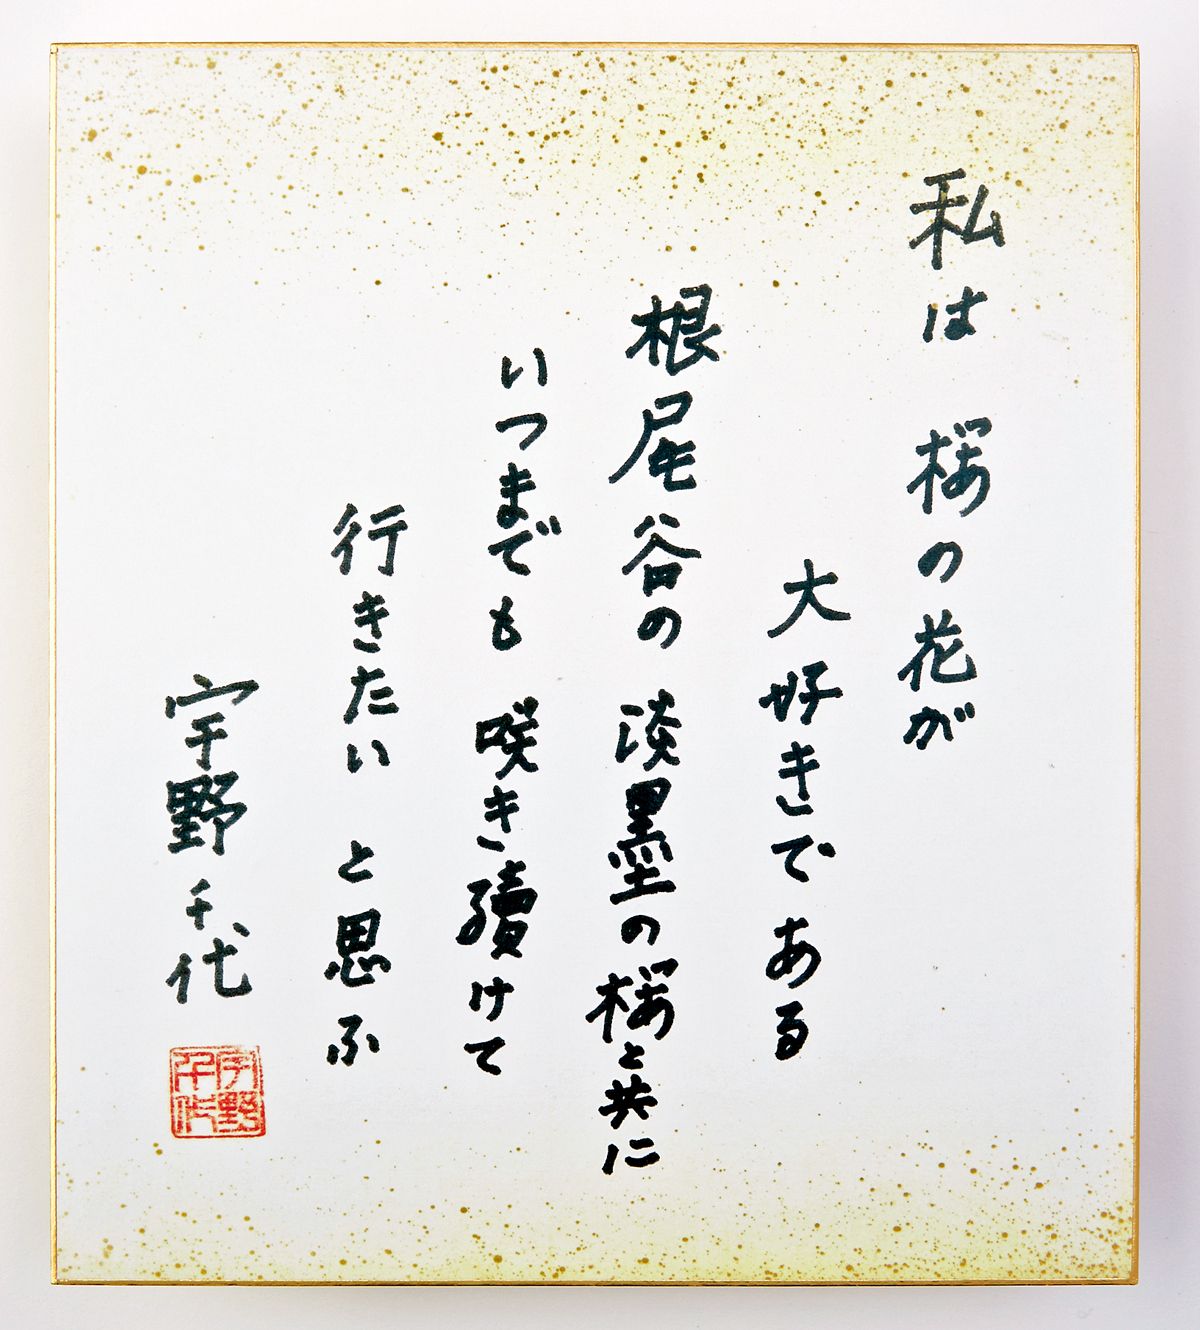 私は 桜の花が
大好きである
根尾谷の 淡墨の桜と共に
いつまでも 咲き續けて
行きたい と思ふ
宇野千代
宇野
千代